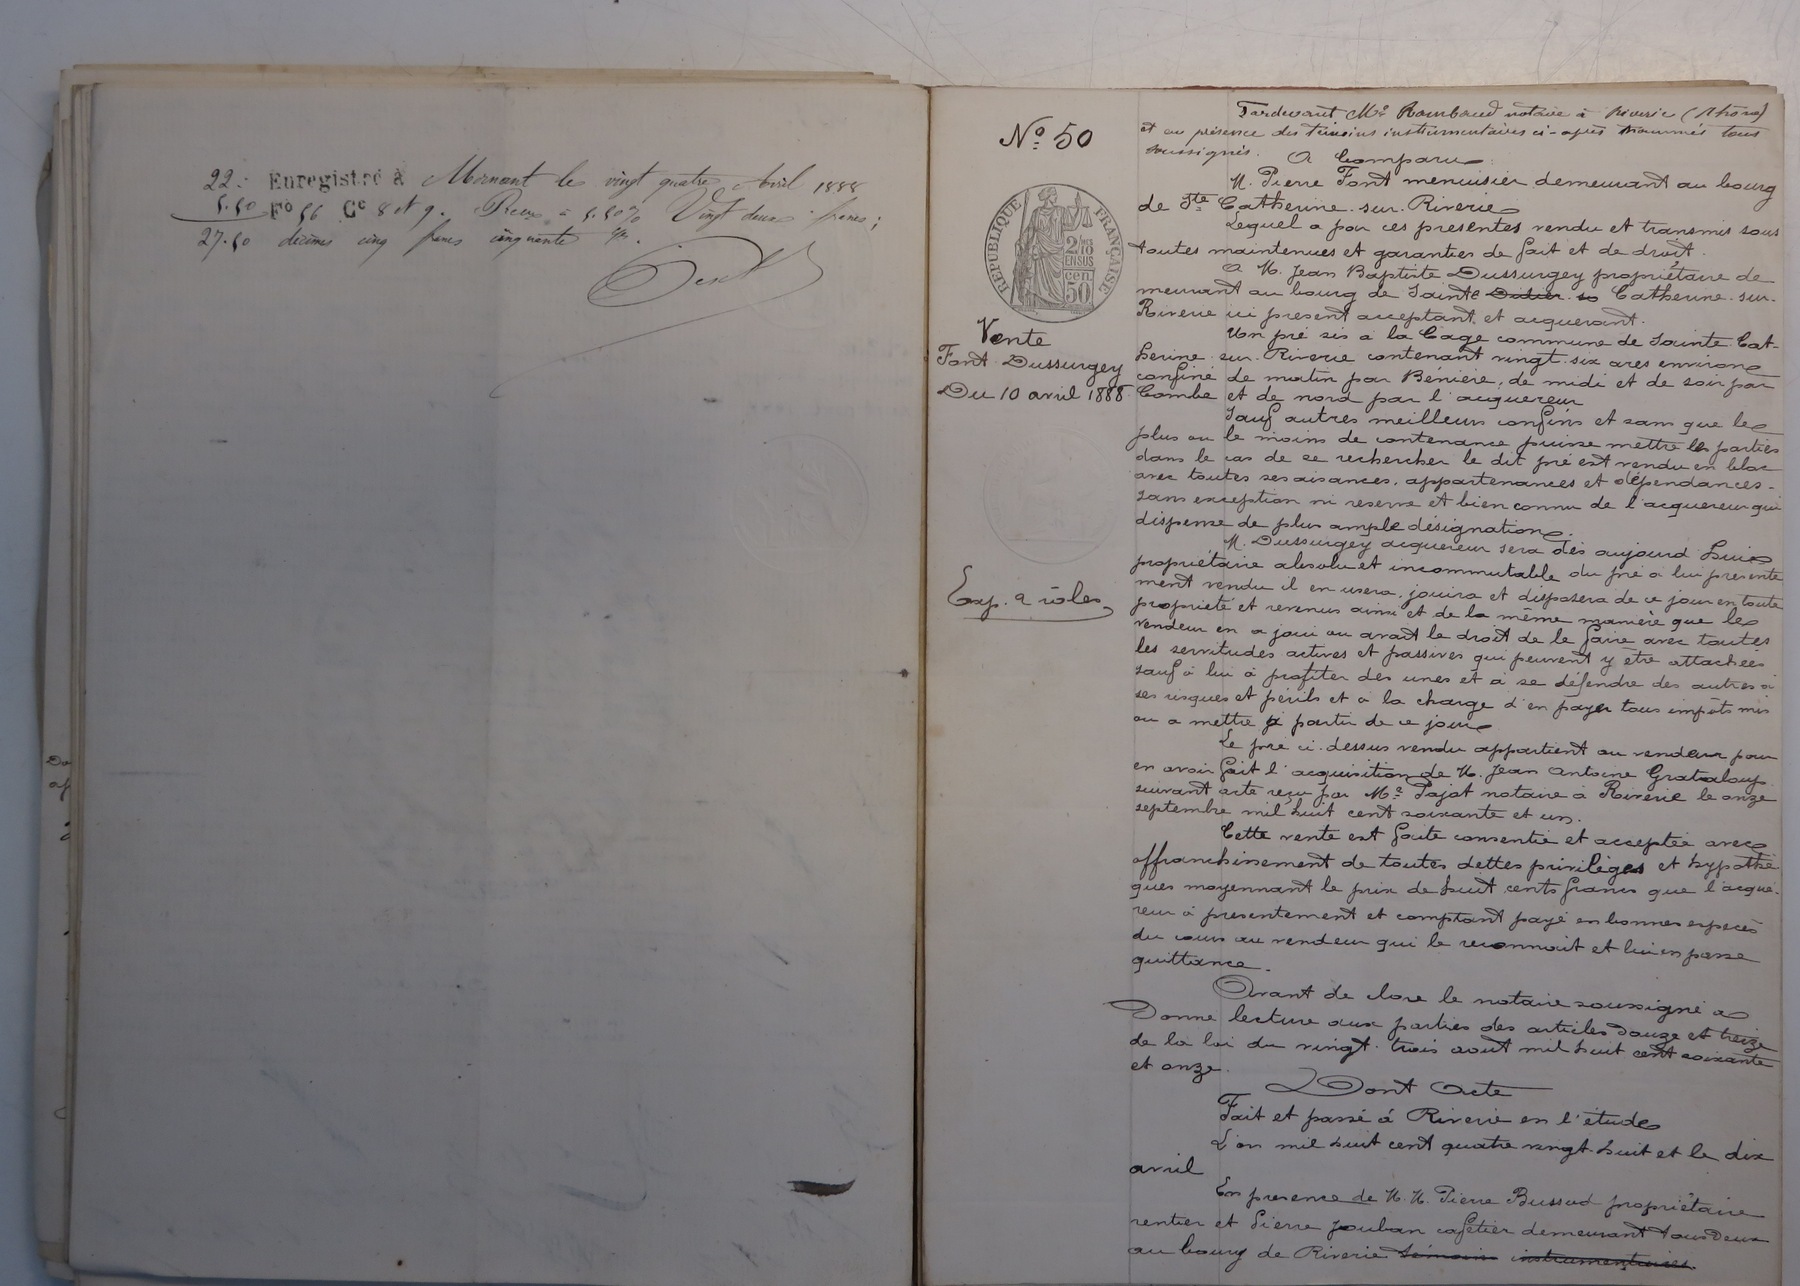 22. Enregistré à Mornant le vingt quatre Avril 1888
5.50 Fo 56 Ce 8 et 9. Reçu à 5.50% Vingt deux francs;
27.50 décimes cinq francs cinquante
No 50
RÉPUBLIQUE FRANÇAISE
2/10
EN SUS
50 cen.
Vente
Font Dussurgey
Du 10 avril 1888
Exp. 2 rôles
Pardevant Me Rambaud notaire à Riverie (Rhône)
et en présence des témoins instrumentaires ci-après nommés tous
soussignés. A Comparu
M. Pierre Font menuisier demeurant au bourg
de Ste Catherine-sur-Riverie
Lequel a par ces présentes vendu et transmis sous
toutes maintenues et garanties de fait et de droit.
A M. Jean Baptiste Dussurgey propriétaire de
meurant au bourg de Sainte Didier so Catherine-sur-
Riverie ici présent acceptant et acquerant.
Un pré sis à la Cage commune de Sainte Cat-
herine-sur-Riverie contenant vingt-six ares environ
confiné de matin par Bénière, de midi et de soir par
Combe et de nord par l'acquereur
Sauf autres meilleurs confins et sans que le
plus ou le moins de contenance puisse mettre les parties
dans le cas de se rechercher le dit pré est vendu en bloc
avec toutes ses aisances, appartenances et dépendances-
sans exception ni reserve et bien connu de l'acquereur qui
dispense de plus ample désignation.
M. Dussurgey acquereur sera dès aujourd'hui
propriétaire absolu et incommutable du pré à lui présente
ment vendu il en usera, jouira et disposera de ce jour en toute
propriété et revenus ainsi et de la même manière que le
vendeur en a joui ou avait le droit de le faire avec toutes
les servitudes actives et passives qui peuvent y être attachées
sauf à lui à profiter des unes et à se défendre des autres à
ses risques et périls et à la charge d'en payer tous impôts mis
ou a mettre à partir de ce jour
Le pré ci-dessus vendu appartient au vendeur pour
en avoir fait l'acquisition de M. Jean Antoine Grataloup
suivant acte reçu par Me Pajot notaire à Riverie le onze
septembre mil huit cent soixante et un.
Cette vente est faite consentie et acceptée avec
affranchissement de toutes dettes privilèges et hypothè
ques moyennant le prix de huit cents francs que l'acqué-
reur à présentement et comptant payé en bonnes espèces
du cours au vendeur qui le reconnait et lui en passe
quittance.
Avant de clore le notaire soussigné a
Donné lecture aux parties des articles douze et treize
de la loi du vingt-trois août mil huit cent soixante
et onze.
Dont Acte
Fait et passé à Riverie en l'étude
L'an mil huit cent quatre vingt huit et le dix
avril
En présence de M. M. Pierre Bussod propriétaire
rentier et Pierre Jouban cafetier demeurant tous deux
au bourg de Riverie témoins instrumentaires.